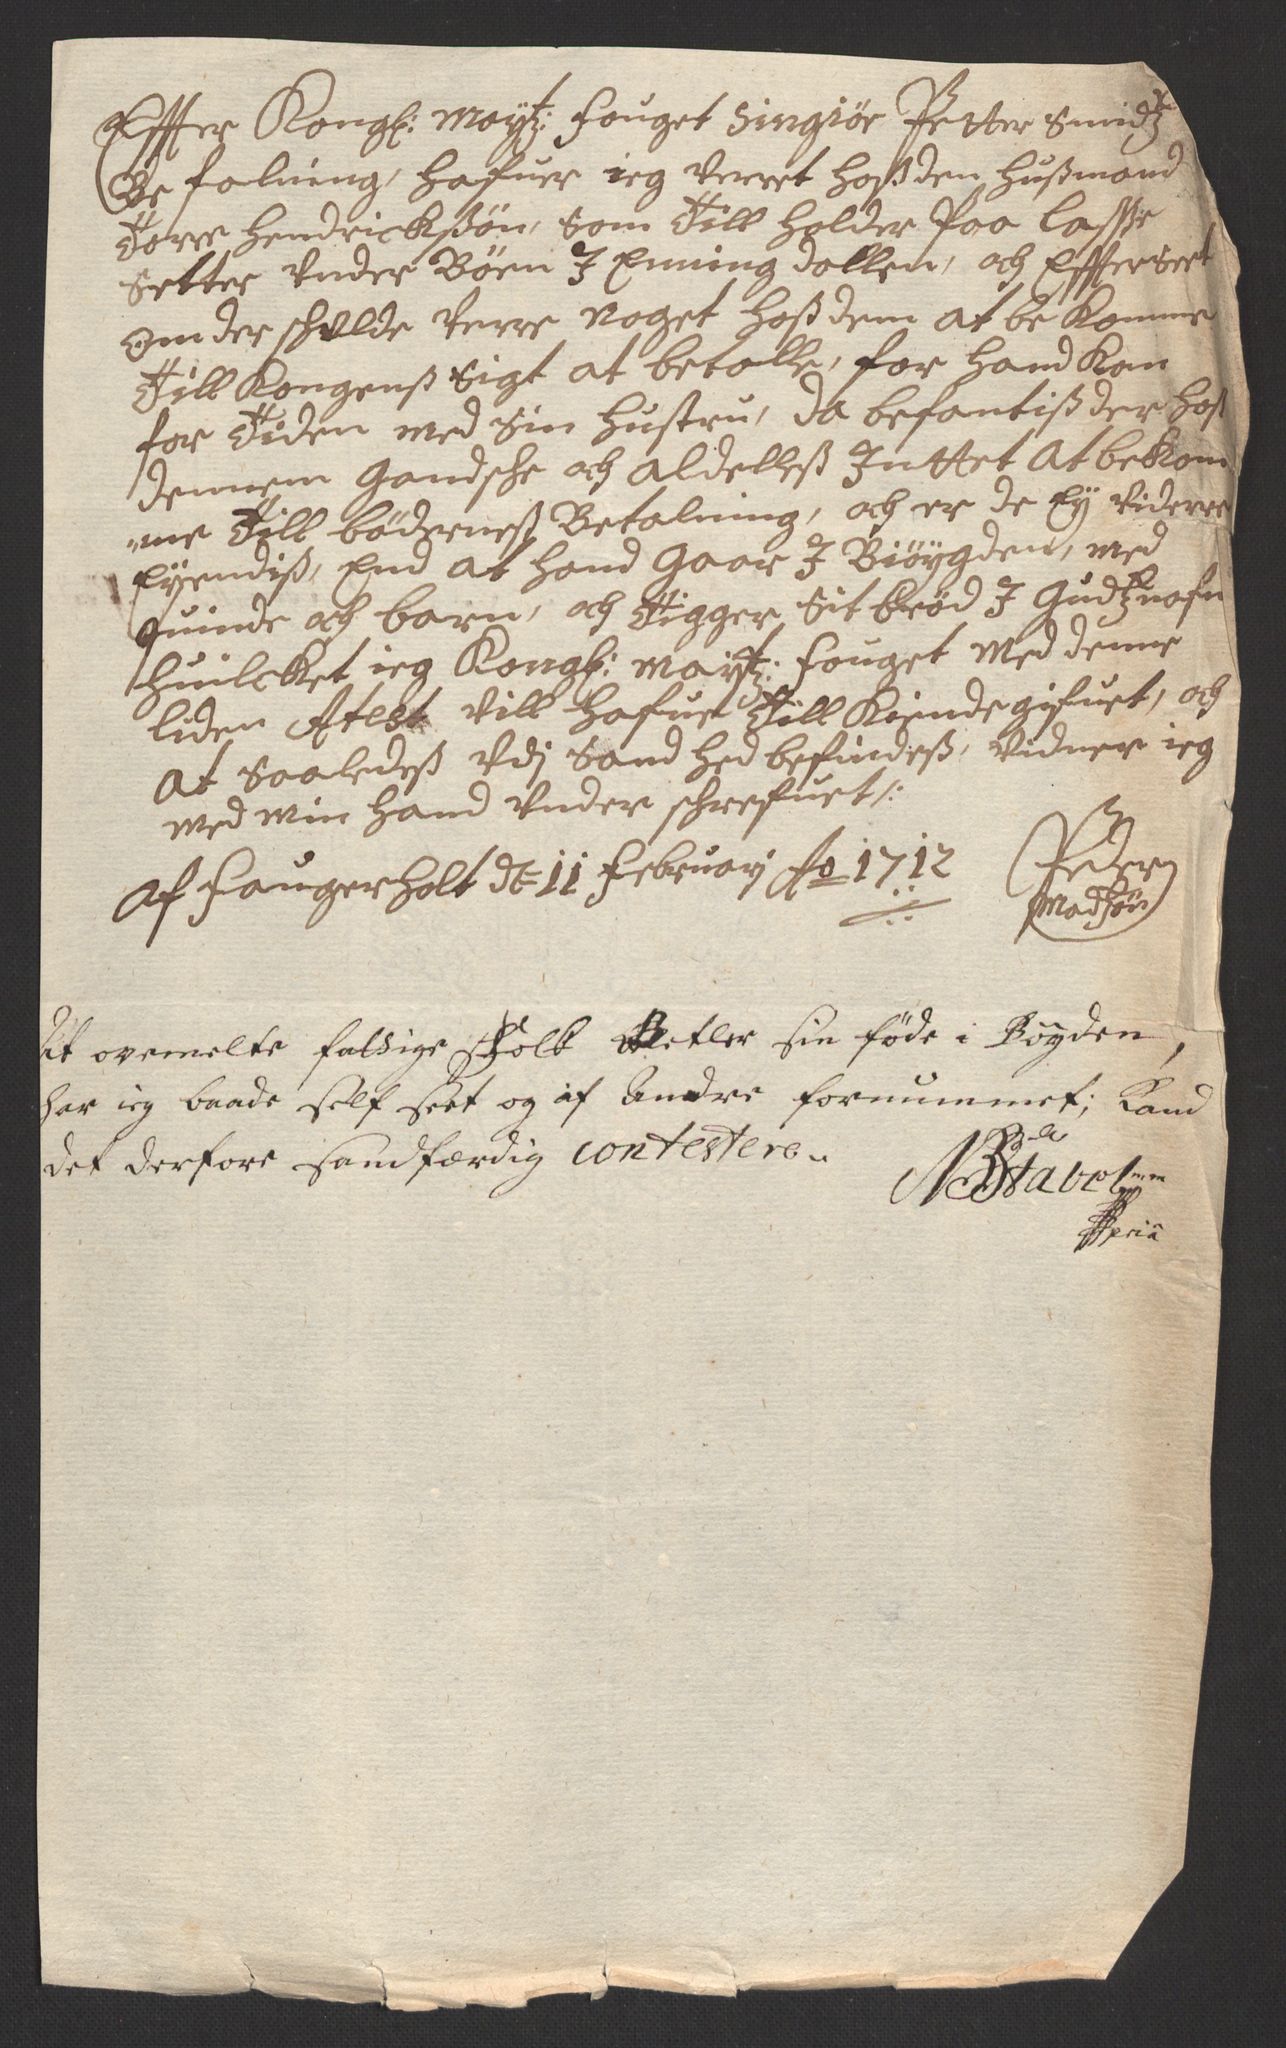 Effter Kongl: Maytz: fouget Singiör Petter Smidtz
Befalning, hafuer ieg verret hoß den hußmand
Torre Hendrickßön, Som Till holder Paa Lasse
Setter Vnder Böen I Enning dallen, och Effter Seet
Om der schulde verre noget hoß dem at be komme
Till Kongenß Sigt at betalle, for hand Kan
for Tiden med Sin hustru, da befantiß der hoß
dennem gandsche och aldelleß Inttet at bekom
me Till bödernes Betalning, och er de Ey viderre
Eyendiß, End at hand gaar I Biöygden, med
quinde och barn, och Tigger Sit bröd I Gudtz nafn
huilcket ieg Kongl: Maytz: fouget med denne
liden Atest vill hafue Till Kiende gifuet, och
at Saaledeß Vdj Sand hed befindeß, vidner ieg
med min hand Vnder schrefuet /:
Af Faugerholt d: 11 Februarj Ao 1712
Peder
Madsön
At ovemelte fattige Folk Betler sin föde i Bögden,
har ieg baade self seet og af Andre fornummet; Kand
det derfore sandfærdig contestere..
NBStabel mm